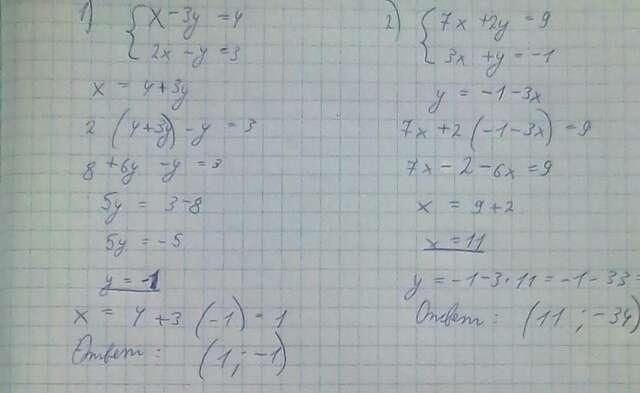 1) { x - 3y = 4
2x - y = 3
x = 4 + 3y
2 (4 + 3y) - y = 3
8 + 6y - y = 3
5y = 3 - 8
5y = - 5
y = -1
x = 4 + 3 (-1) = 1
Ответ: (1; -1)
2) { 7x + 2y = 9
3x + y = -1
y = -1 - 3x
7x + 2 (-1 - 3x) = 9
7x - 2 - 6x = 9
x = 9 + 2
x = 11
y = -1 - 3 · 11 = -1 - 33 =
Ответ: (11; -34)